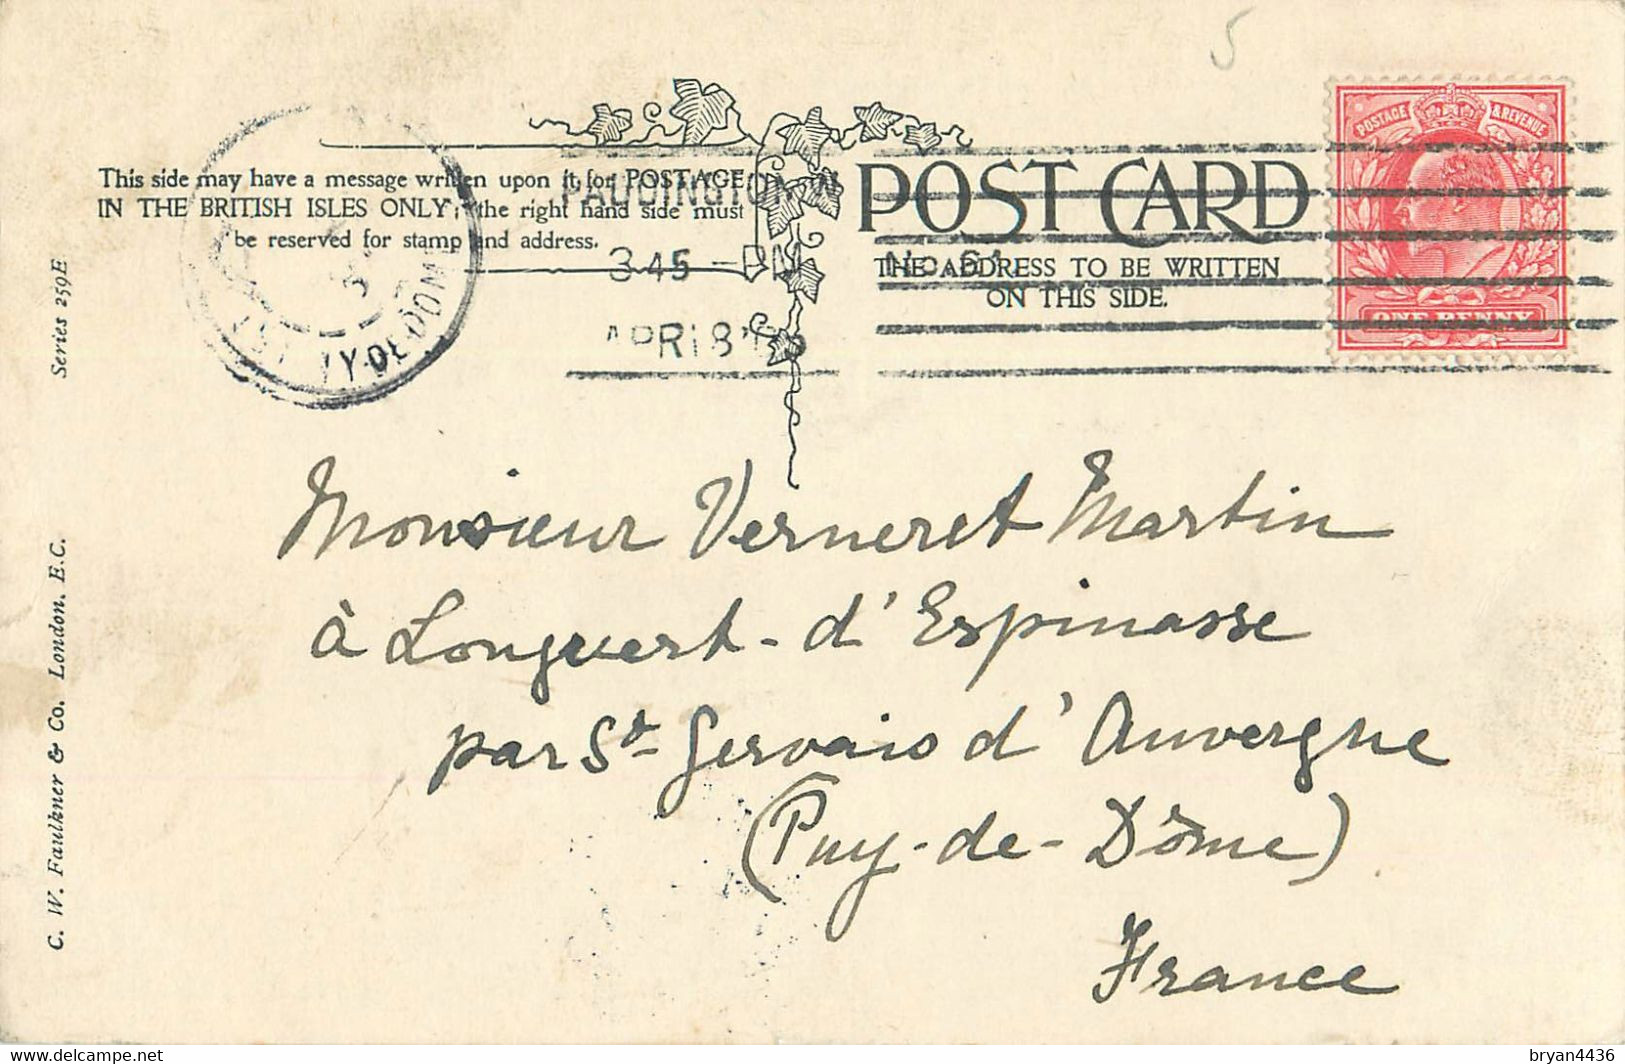 5
POSTAGE & REVENUE
This side may have a message written upon it for POSTAGE
IN THE BRITISH ISLES ONLY; the right hand side must
be reserved for stamp and address.
POST CARD
THE ADDRESS TO BE WRITTEN
ON THIS SIDE.
PADDINGTON W
3 45 - PM
APR 8
PUY-DE-DOME
ONE PENNY
Series 259E
C. W. Faulkner & Co. London. E.C.
Monsieur Verneret Martin
à Longvert - d'Espinasse
par St Gervais d'Auvergne
(Puy-de-Dôme)
France
bryan4436